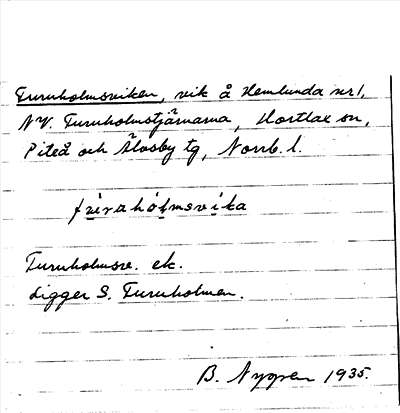 Furuholmsviken, vik å Hemlunda nr 1,
NV. Furuholmstjärnarna, Hortlax sn,
Piteå och Älvsby tg, Norrb. l.
furahólmsvika
Furuholmsv. ek.
Ligger S. Furuholmen.
B. Nygren 1935.